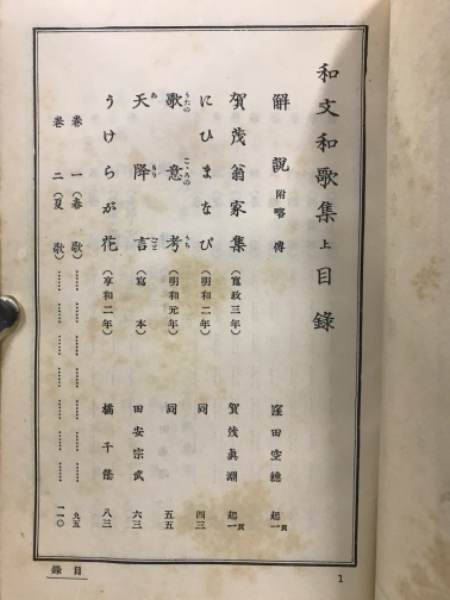 和文和歌集 上 目錄
解説 附略傳 窪田空穗 起一頁
賀茂翁家集 (寬政三年) 賀茂眞淵 起一頁
にひまなび (明和二年) 同 四三
歌意考 (明和元年) 同 五五
うたの こゝろの うち
天降言 (寫本) 田安宗武 六三
あ もり ごと
うけらが花 (享和二年) 橘千蔭 八三
卷一(春歌)………………… 九五
卷二(夏歌)………………… 一一〇
目錄
1